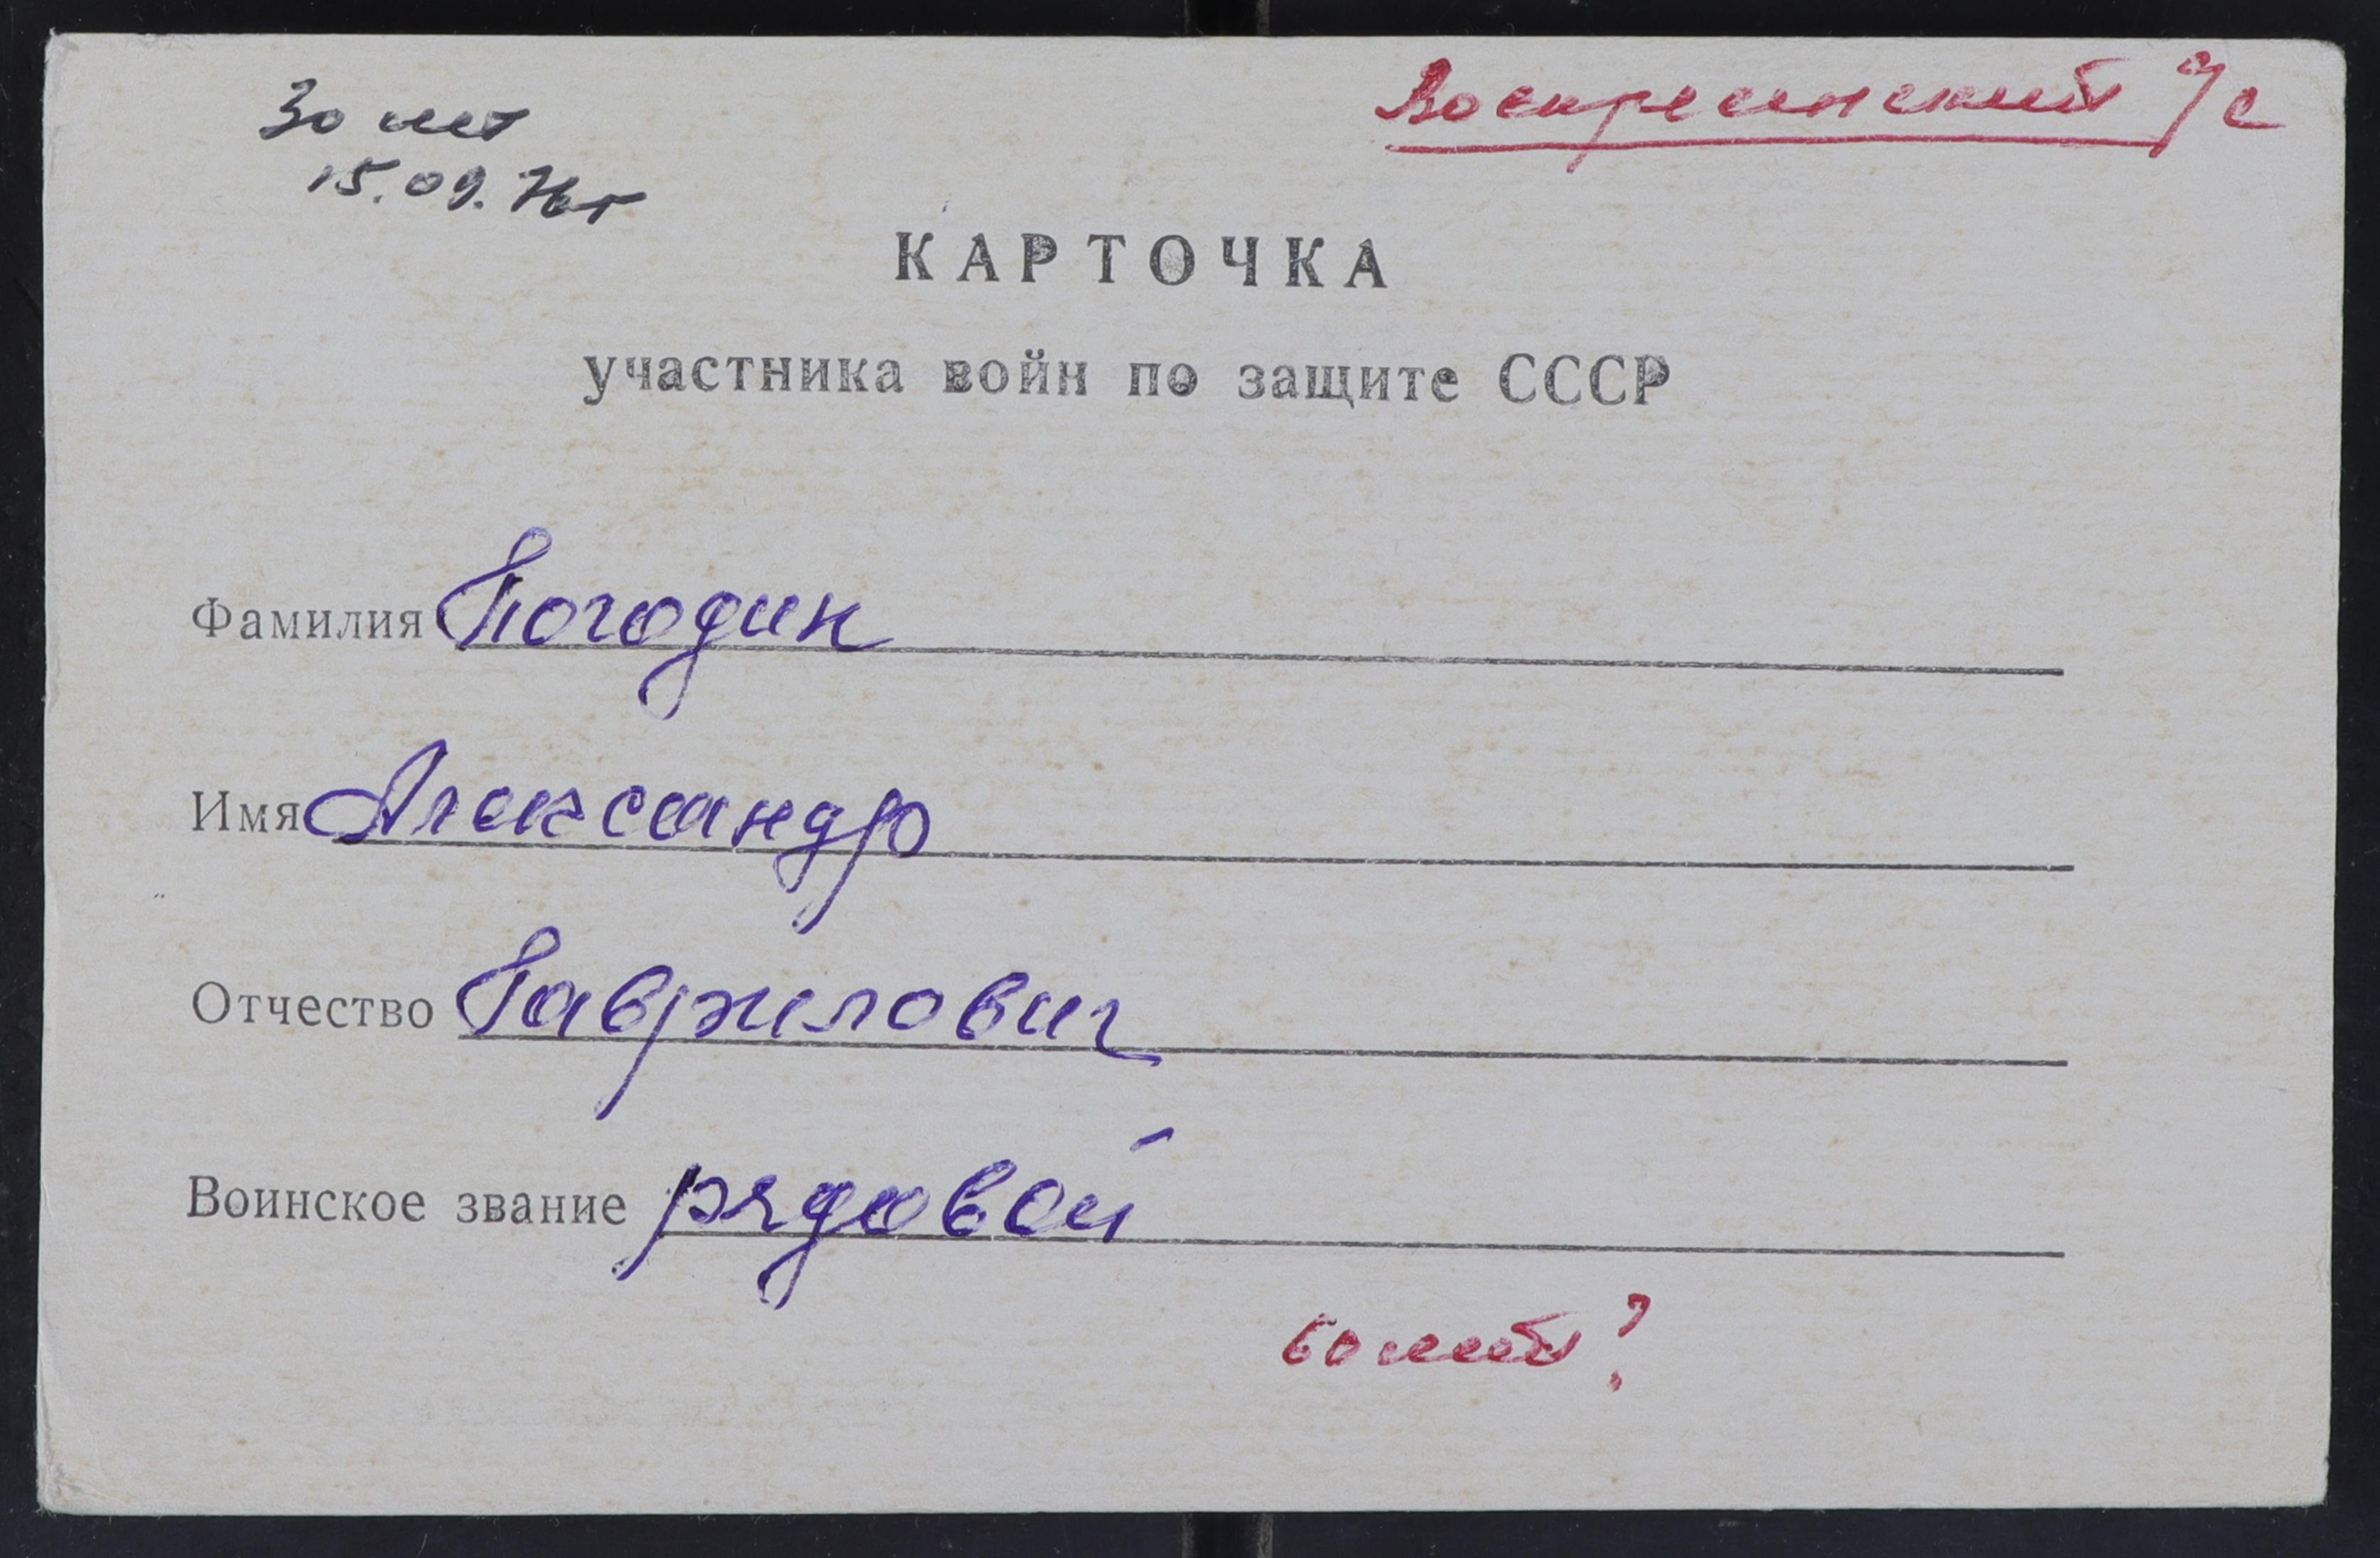 30 лет
15.09.76 г
Воскресенский с/с
КАРТОЧКА
участника войн по защите СССР
Фамилия Погодин
Имя Александр
Отчество Гаврилович
Воинское звание рядовой
60 лет ?